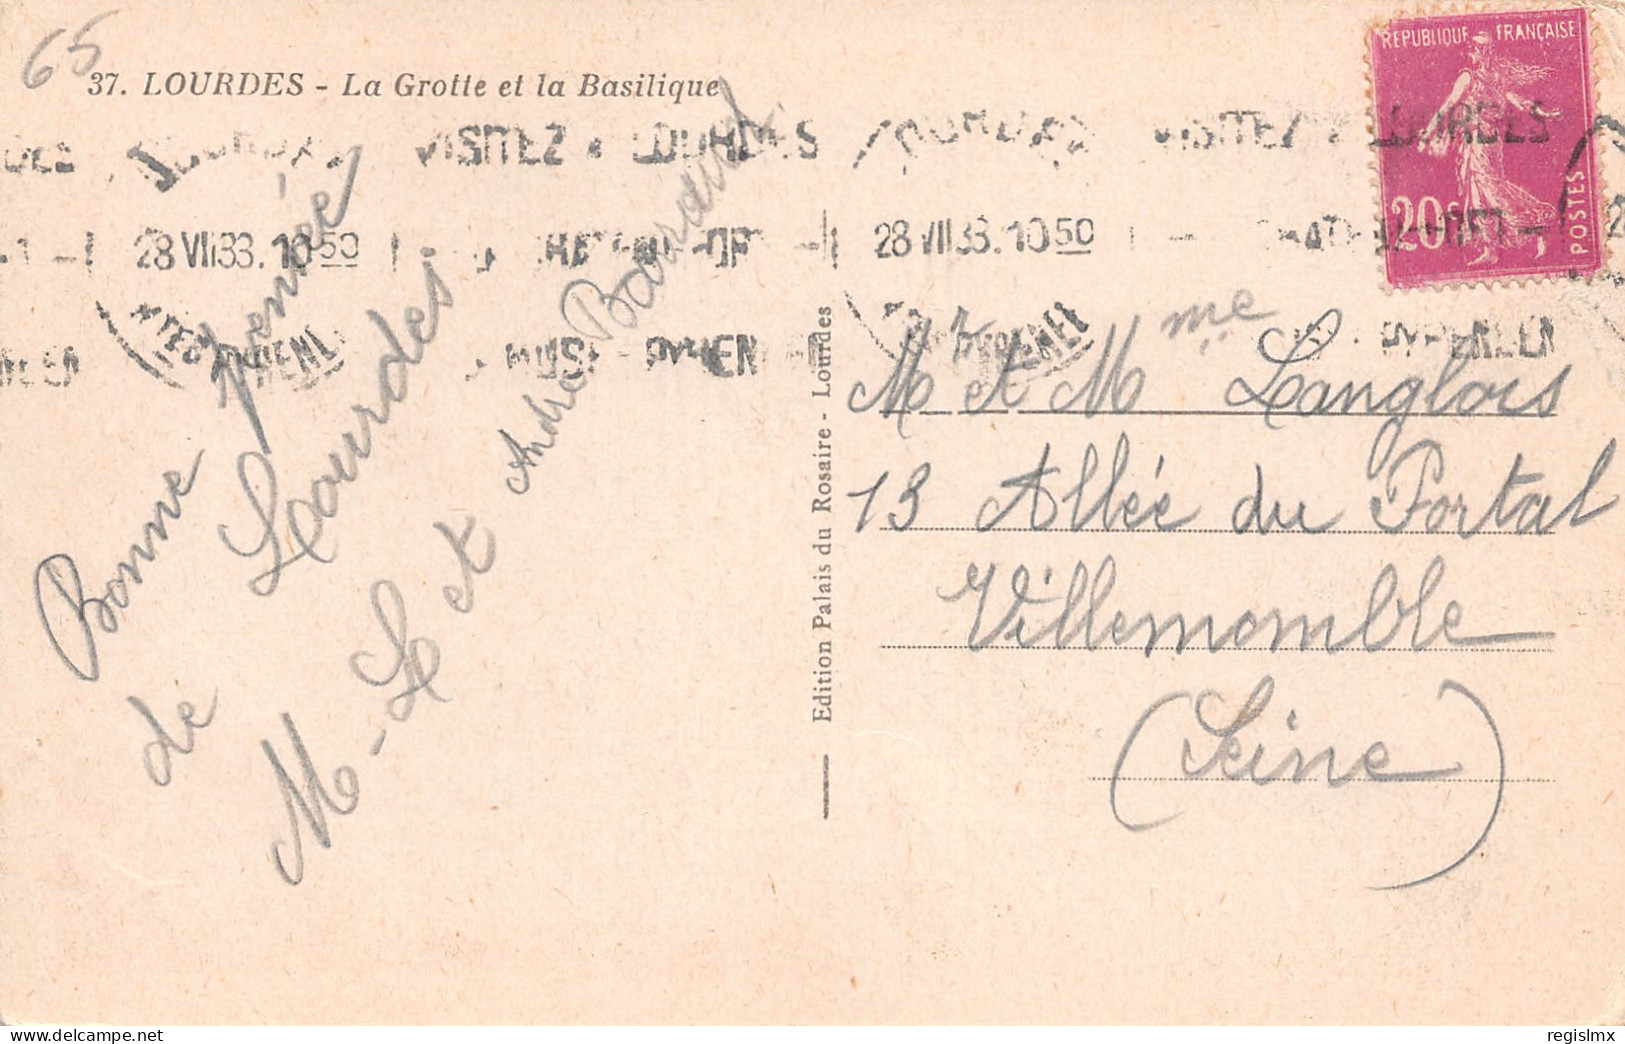 65
37. LOURDES - La Grotte et la Basilique
REPUBLIQUE FRANÇAISE
20c
POSTES
LOURDES VISITEZ * LOURDES
28 VII 33. 10 50
28 VII 33. 10 50
VISITEZ * LOURDES
Bonne pensée
de Lourdes
M-L et André
Edition Palais du Rosaire - Lourdes
M et Mme Langlois
13 Allée du Portal
Villemomble
(Seine)
delcampe.net
regislmx